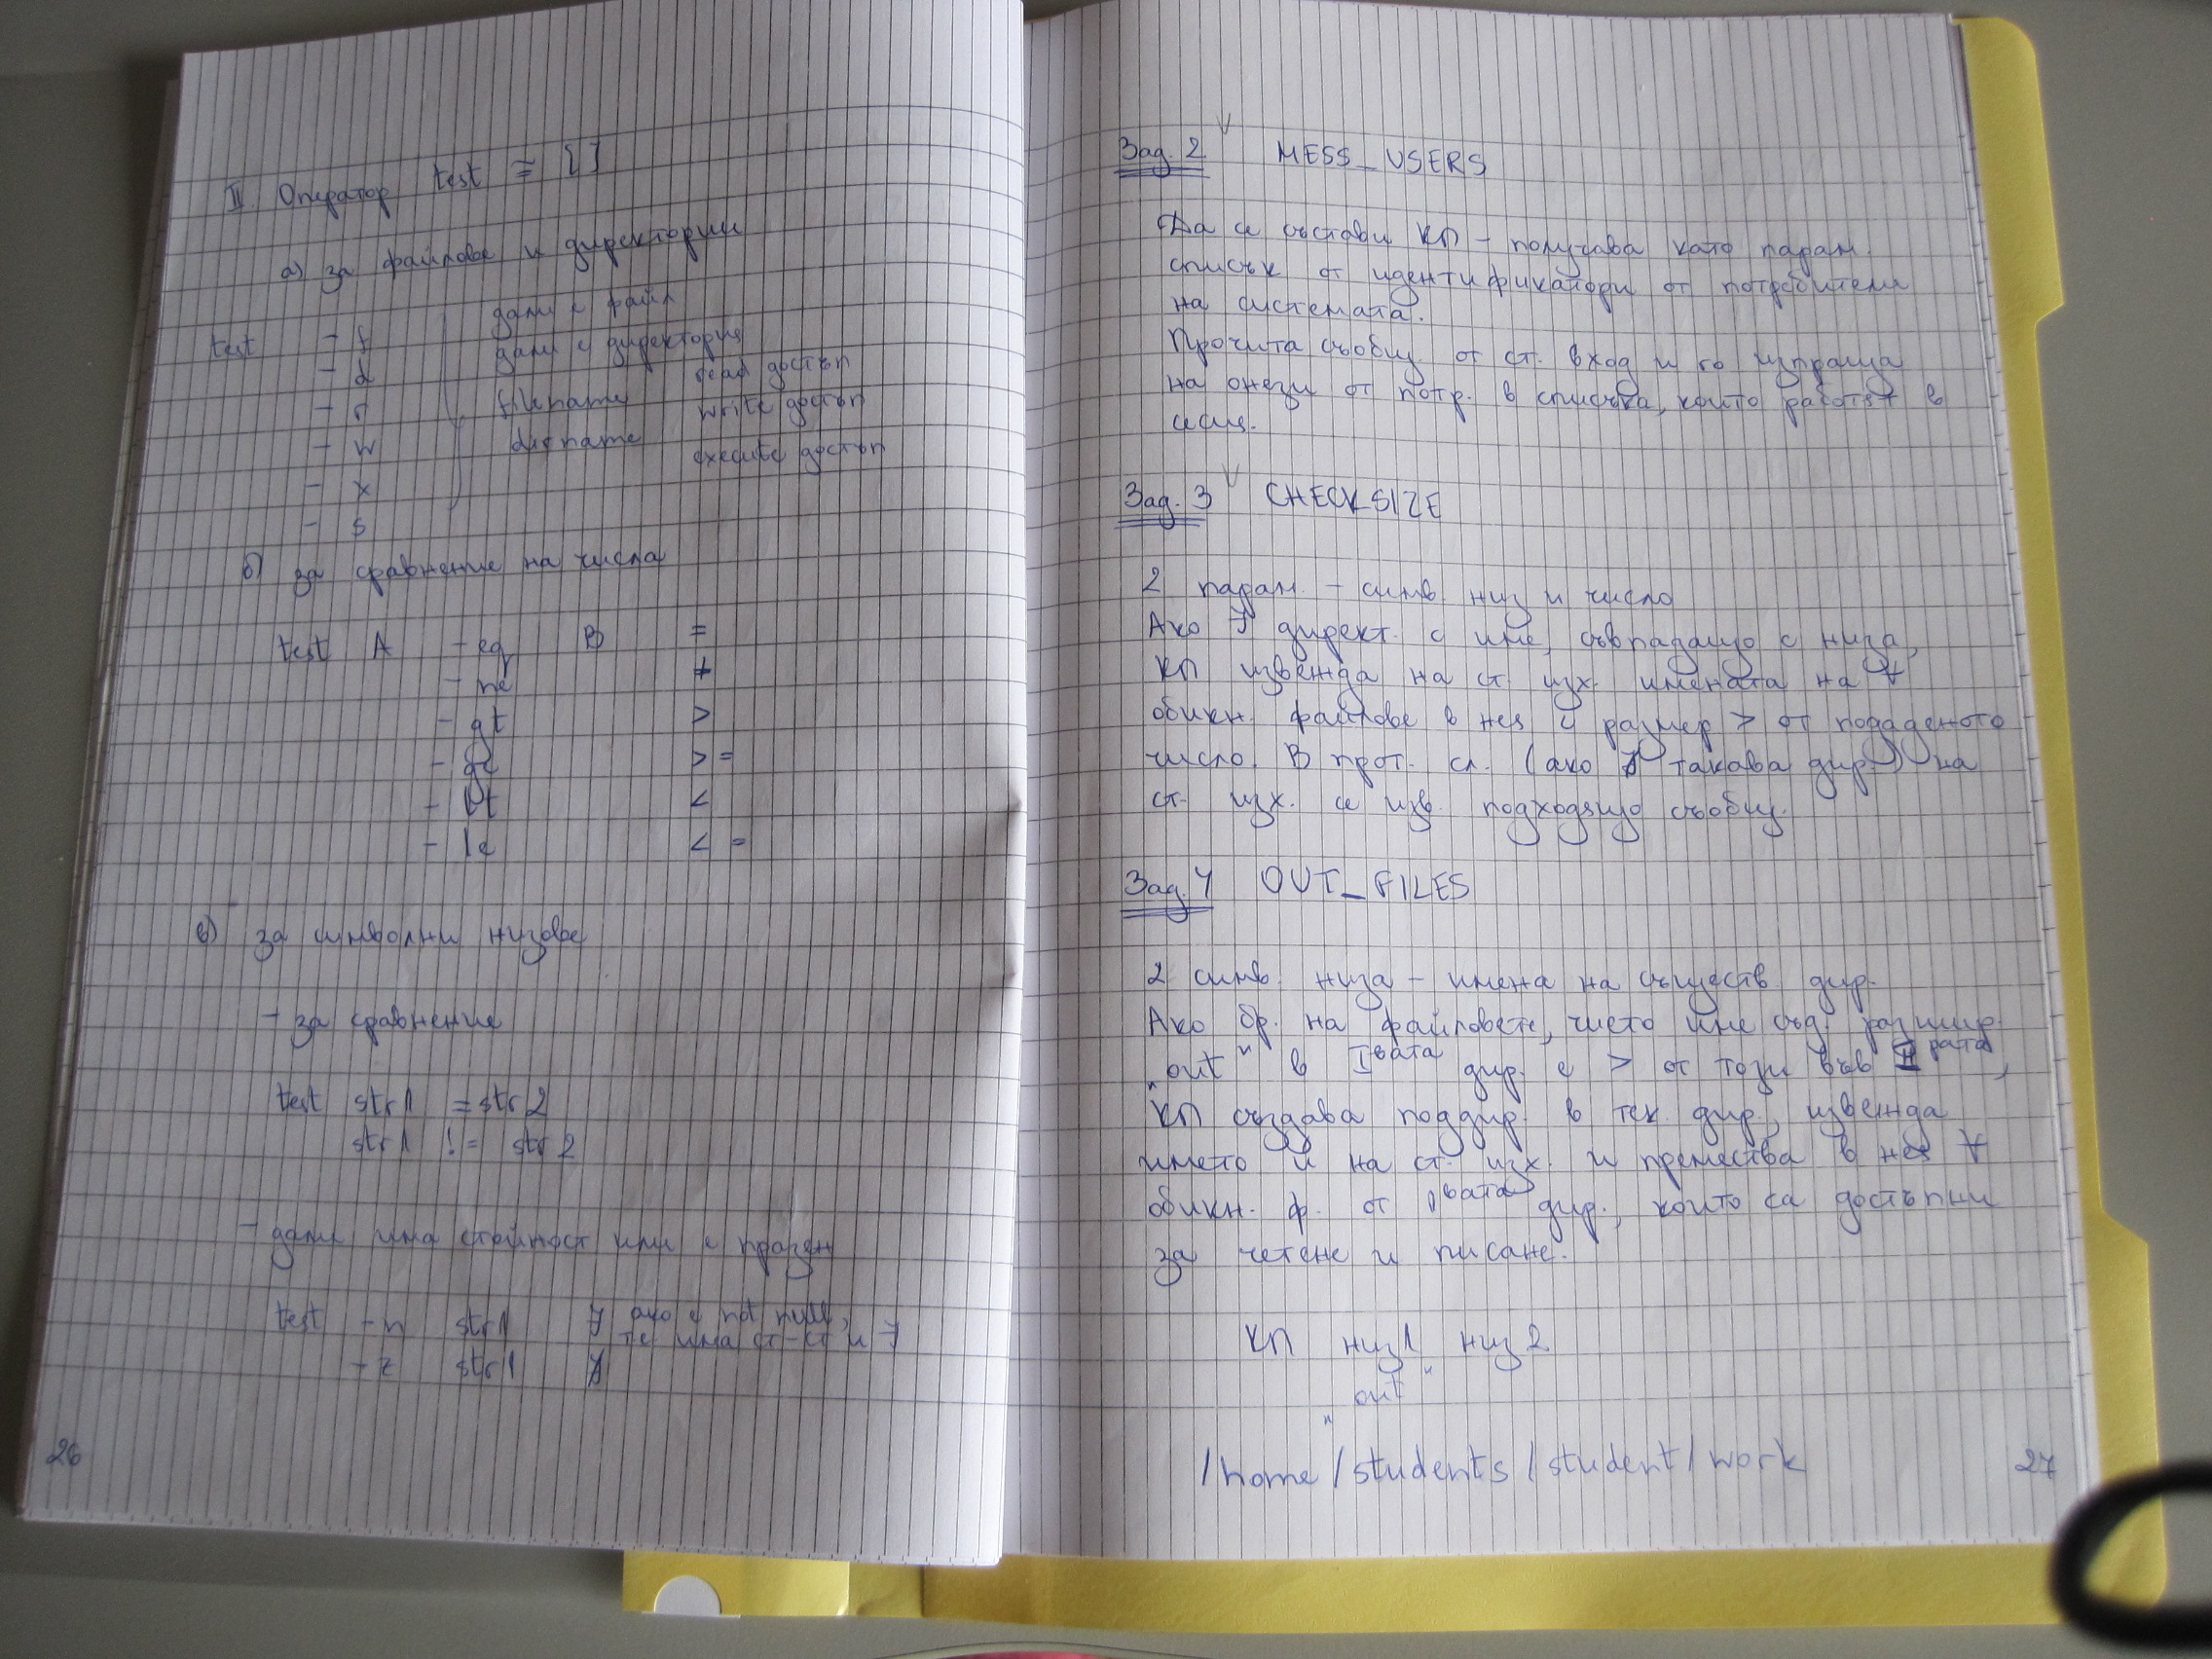 II. Оператор test ≡ [ ]
а) за файлове и директории
test - f дали е файл
- d дали е директория
- r filename read достъп
- w dirname write достъп
- x execute достъп
- s
б) за сравнение на числа
test A - eq B =
- ne ≠
- gt >
- ge > =
- lt <
- le < =
в) за символни низове
- за сравнение
test str1 = str2
str1 != str2
- дали има стойност или е празен
test - n str1 ∃ ако е not null,
те има ст-ст и ∃
- z str1 ∄
26
Зад. 2 MESS_USERS
Да се състави КП - получава като парам.
списък от идентификатори от потребители
на системата.
Прочита съобщ. от ст. вход и го изпраща
на онези от потр. в списъка, които работят в
сесия.
Зад. 3 CHECKSIZE
2 парам. - симв. низ и число
Ако ∃ директ. с име, съвпадащо с низа,
КП извежда на ст. изх. имената на ∀
обикн. файлове в нея с размер > от подаденото
число. В прот. сл. (ако ∄ такава дир.) на
ст. изх. се изв. подходящо съобщ.
Зад. 4 OUT_FILES
2 симв. низа - имена на съществ. дир.
Ако бр. на файловете, чието име съд. разшир.
"out" в Iвата дир. е > от този във IIрата,
КП създава поддир. в тек. дир., извежда
името ѝ на ст. изх. и премества в нея ∀
обикн. ф. от 1вата дир., които са достъпни
за четене и писане.
КП низ1 низ2
"out"
/home/students/student/work
27